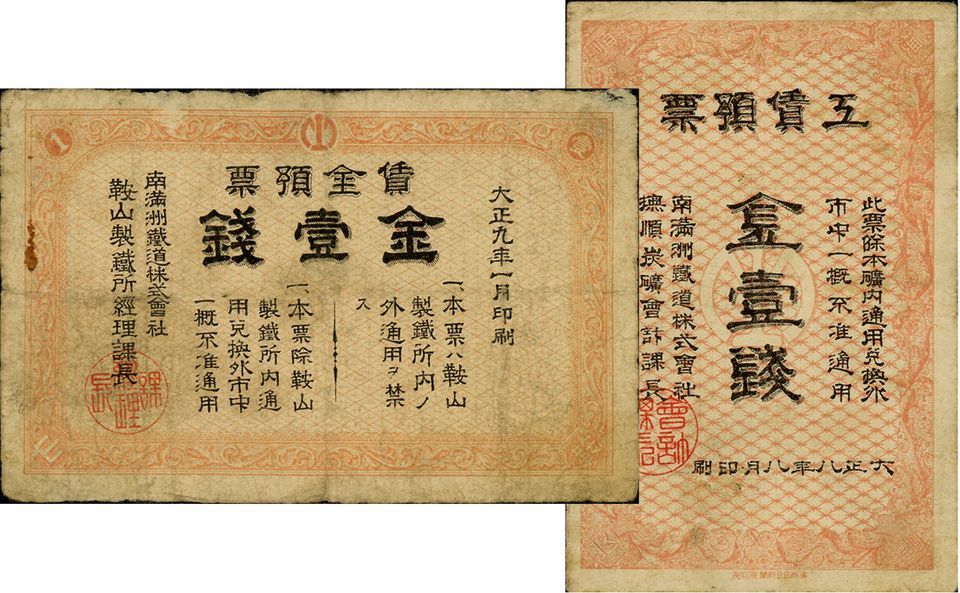 賃金預票
金壹錢
大正九年一月印刷
一、本票ハ鞍山
製鐵所内ノ
外通用ヲ禁
ス
一、本票除鞍山
製鐵所内通
用兌換外市中
一概不准通用
南滿洲鐵道株式會社
鞍山製鐵所經理課長
1
工賃預票
此票除本礦内通用兌換外
市中一概不准通用
金壹錢
南滿洲鐵道株式會社
撫順炭礦會計課長
大正八年八月印刷